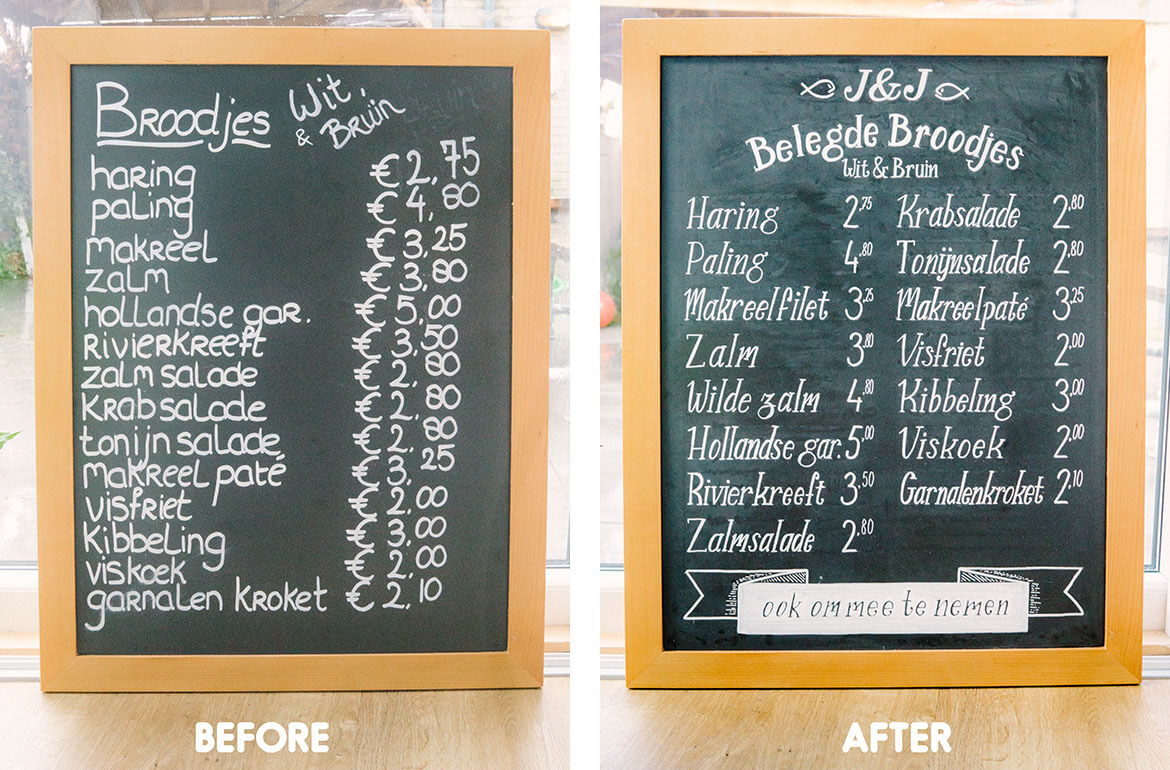 Broodjes Wit & Bruin
haring € 2,75
paling € 4,80
makreel € 3,25
zalm € 3,80
hollandse gar. € 5,00
Rivierkreeft € 3,50
zalm salade € 2,80
Krab salade € 2,80
tonijn salade € 2,80
makreel paté € 3,25
visfriet € 2,00
Kibbeling € 3,00
viskoek € 2,00
garnalen kroket € 2,10
BEFORE
J&J
Belegde Broodjes
Wit & Bruin
Haring 2,75 Krabsalade 2,80
Paling 4,80 Tonijnsalade 2,80
Makreelfilet 3,25 Makreelpaté 3,25
Zalm 3,80 Visfriet 2,00
Wilde zalm 4,80 Kibbeling 3,00
Hollandse gar. 5,00 Viskoek 2,00
Rivierkreeft 3,50 Garnalenkroket 2,10
Zalmsalade 2,80
ook om mee te nemen
AFTER